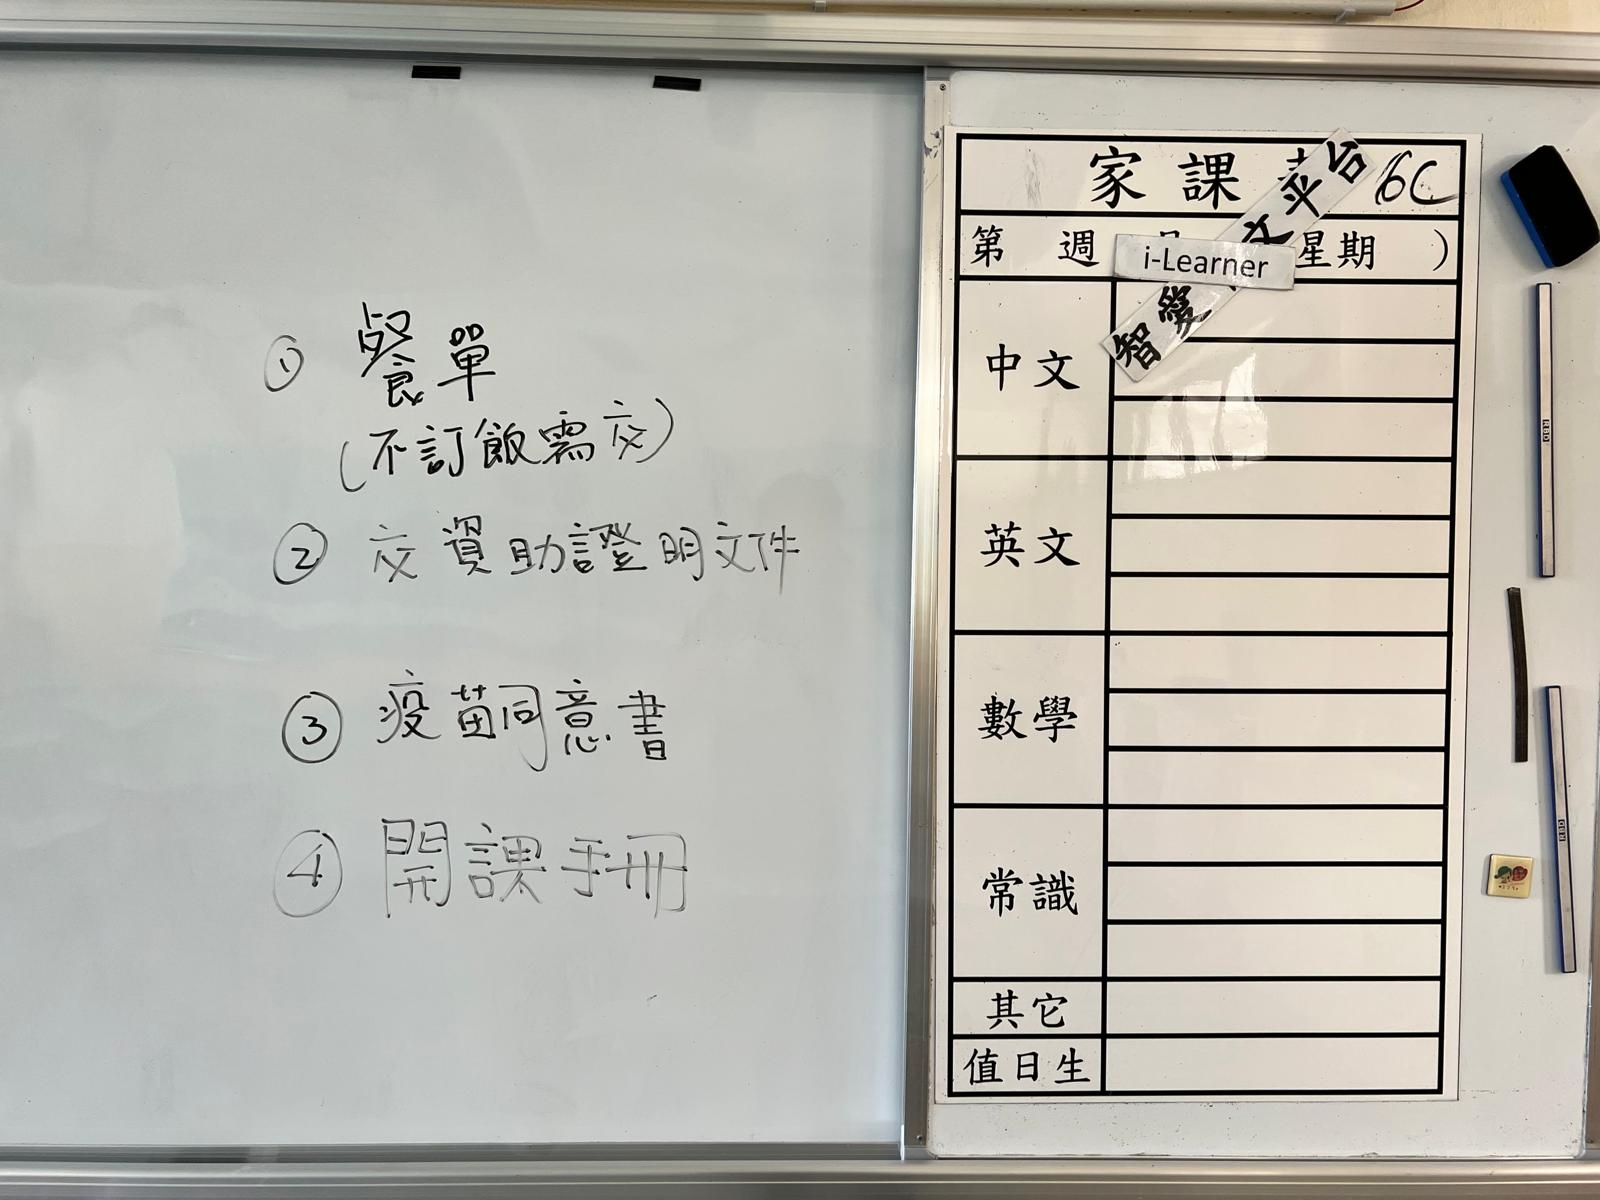 ① 餐單
(不訂飯需交)
② 交資助證明文件
③ 疫苗同意書
④ 開課手冊
家課 6C
第 週 星期 )
智愛 文平台
i-Learner
中文
英文
數學
常識
其它
值日生
KBO
KBO